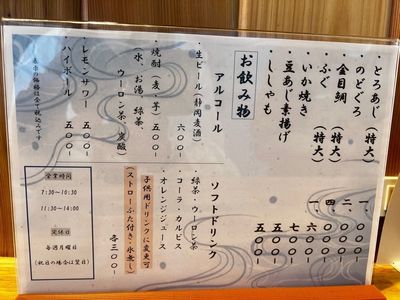 ・とろあじ（特大）
・のどぐろ
・金目鯛（特大）
・ふぐ（特大）
・いか焼き 六〇〇-
・豆あじ素揚げ 五〇〇-
・ししゃも 五〇〇-
お飲み物
アルコール
・生ビール（静岡麦酒） 六〇〇-
・焼酎（麦、芋） 五〇〇-
（水、お湯、緑茶、
ウーロン茶、炭酸）
・レモンサワー 五〇〇-
・ハイボール 五〇〇-
ソフトドリンク
・緑茶・ウーロン茶
・コーラ・カルピス
・オレンジジュース
各三〇〇-
子供用ドリンクに変更可
（ストローふた付き・氷無し）
表示の価格は全て税込みです
営業時間
7:30~10:30
11:30~14:00
定休日
毎週月曜日
（祝日の場合は翌日）